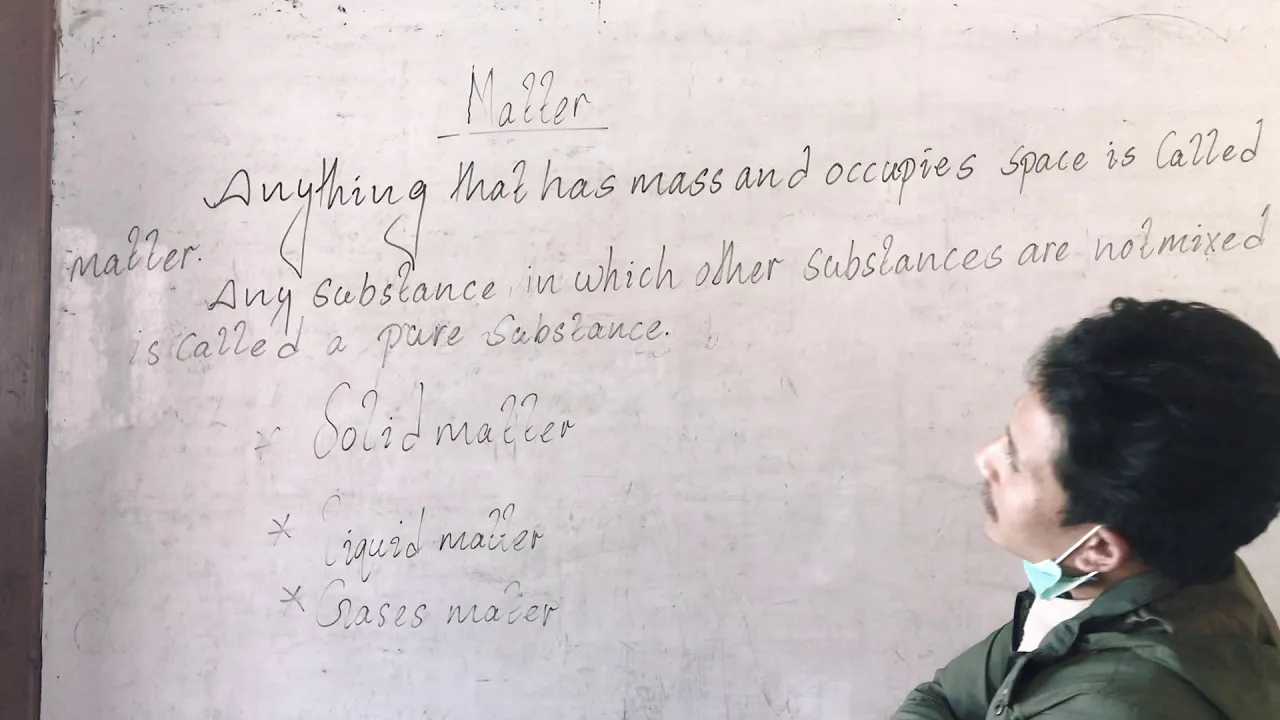 Matter
Anything that has mass and occupies space is Called
matter.
Any substance in which other substances are not mixed
is called a pure substance.
* Solid matter
* Liquid matter
* Gases mater